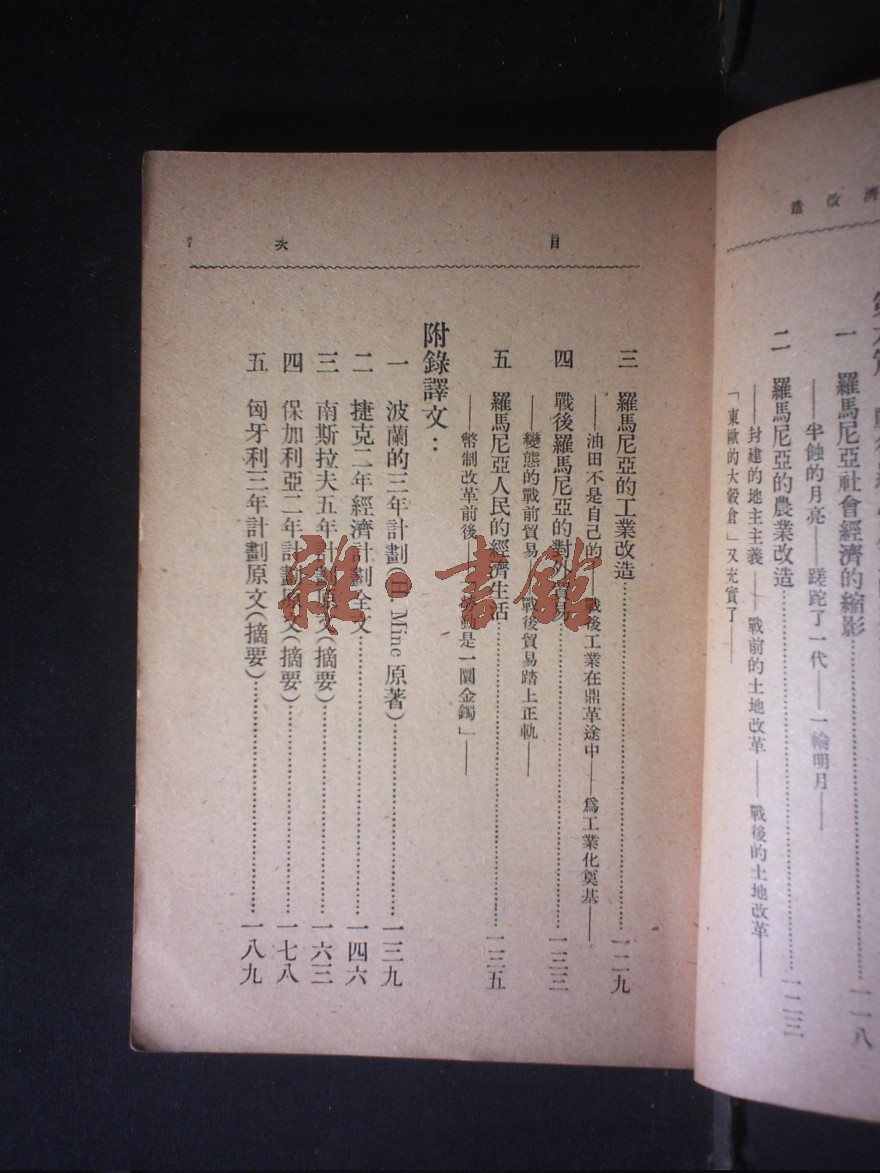 濟改造
一 羅馬尼亞社會經濟的縮影…………一一八
——半蝕的月亮——蹉跎了一代——一輪明月——
二 羅馬尼亞的農業改造…………一二三
——封建的地主主義——戰前的土地改革——戰後的土地改革——
「東歐的大穀倉」又充實了——
目次
三 羅馬尼亞的工業改造…………一二九
——油田不是自己的——戰後工業在鼎革途中——爲工業化奠基——
四 戰後羅馬尼亞的對外貿易…………一三三
——變態的戰前貿易——戰後貿易踏上正軌——
五 羅馬尼亞人民的經濟生活…………一三五
——幣制改革前後——勞動是一圜金鐲」——
附錄譯文：
一 波蘭的三年計劃(H. Minc 原著)…………一三九
二 捷克二年經濟計劃全文…………一四六
三 南斯拉夫五年計劃原文(摘要)…………一六三
四 保加利亞二年計劃原文(摘要)…………一七八
五 匈牙利三年計劃原文(摘要)…………一八九
雜·書館